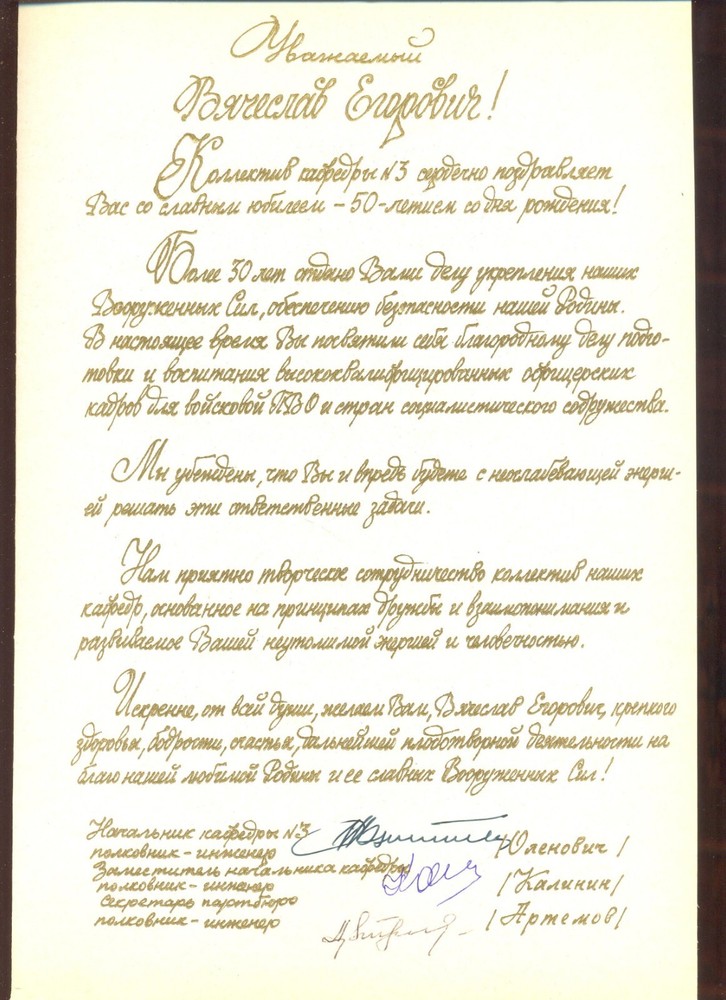 Уважаемый
Вячеслав Егорович!
Коллектив кафедры №3 сердечно поздравляет
Вас со славным юбилеем – 50-летием со дня рождения!
Более 30 лет отдано Вами делу укрепления наших
Вооруженных Сил, обеспечению безопасности нашей Родины.
В настоящее время Вы посвятили себя благородному делу подго-
товки и воспитания высококвалифицированных офицерских
кадров для войсковой ПВО и стран социалистического содружества.
Мы убеждены, что Вы и впредь будете с неослабевающей энерги-
ей решать эти ответственные задачи.
Нам приятно творческое сотрудничество коллектив наших
кафедр, основанное на принципах дружбы и взаимопонимания и
развиваемое Вашей неутомимой энергией и человечностью.
Искренне, от всей души, желаем Вам, Вячеслав Егорович, крепкого
здоровья, бодрости, счастья, дальнейшей плодотворной деятельности на
благо нашей любимой Родины и ее славных Вооруженных Сил!
Начальник кафедры №3
полковник – инженер /Оленович/
Заместитель начальника кафедры
полковник – инженер /Калинин/
Секретарь партбюро
полковник – инженер /Артемов/